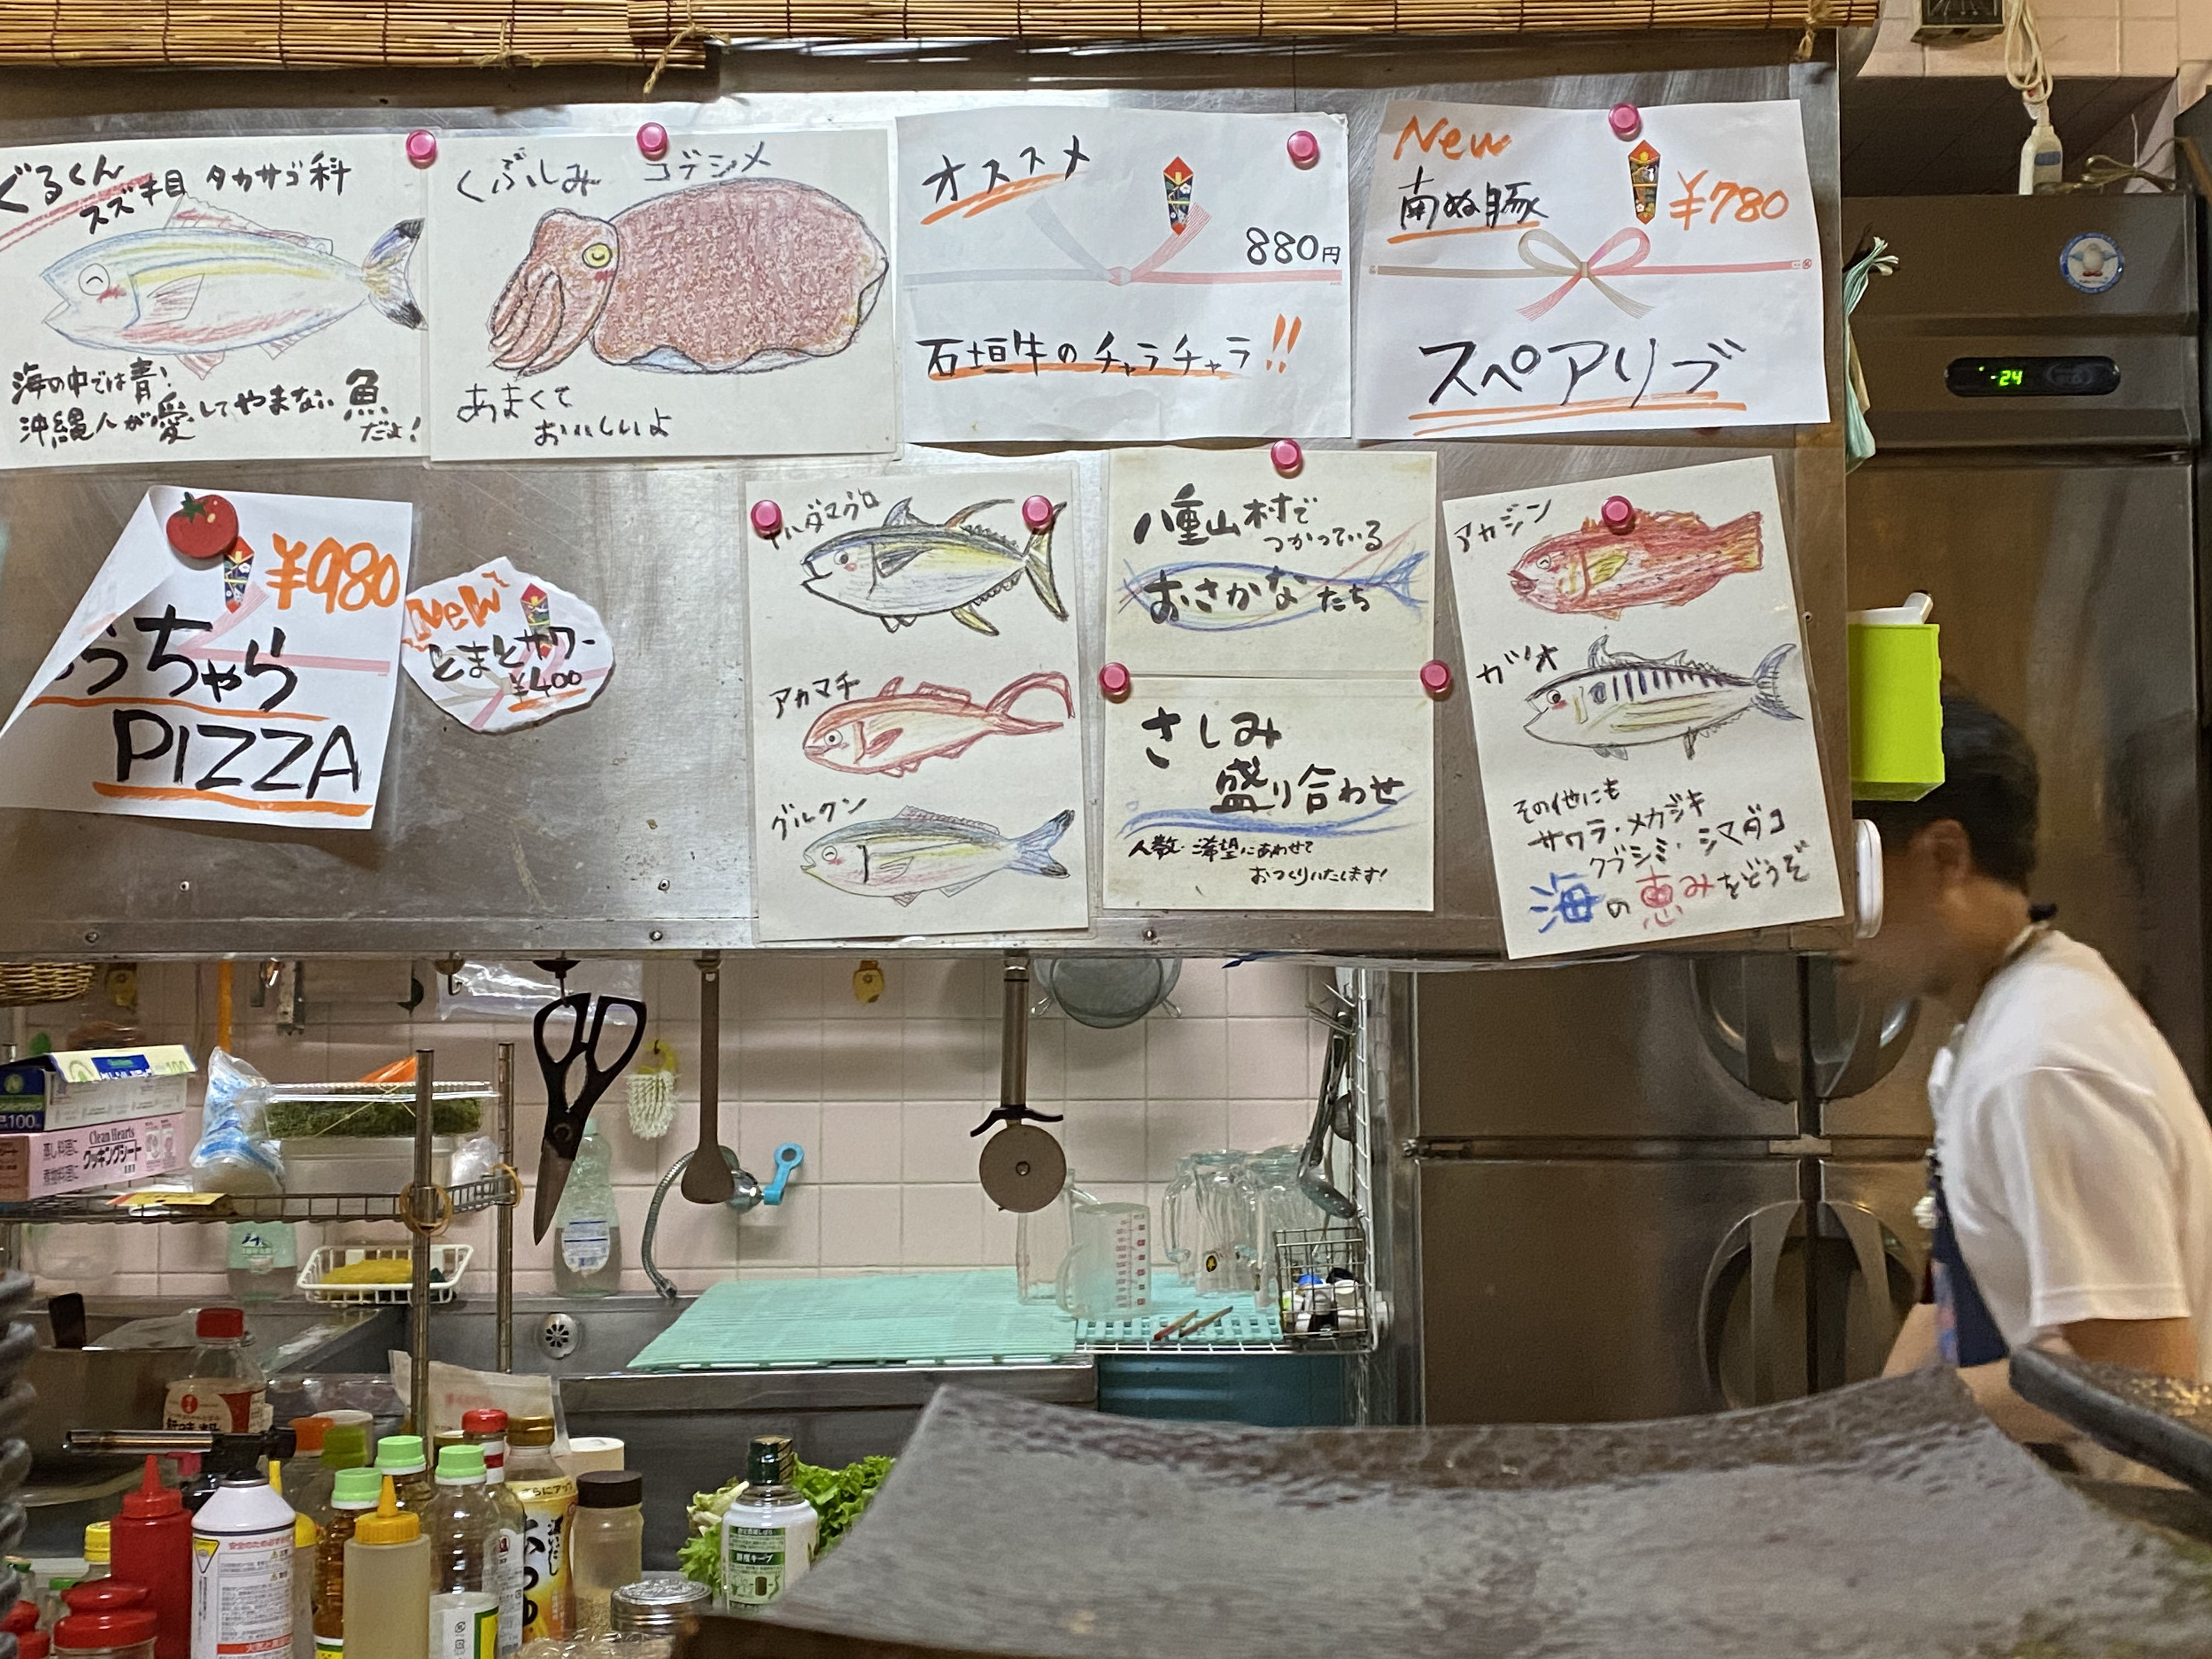 ぐるくん
スズキ目 タカサゴ科
海の中では青!
沖縄人が愛してやまない魚
だよ!
くぶしみ コブシメ
あまくて
おいしいよ
オススメ
880円
石垣牛のチャラチャラ!!
New
南ぬ豚
¥780
スペアリブ
¥980
うちゃら
PIZZA
New
とまとサワー
¥400
キハダマグロ
アカマチ
グルクン
八重山村で
つかっている
おさかなたち
さしみ
盛り合わせ
人数・ご希望にあわせて
おつくりいたします!
アカジン
ガツオ
その他にも
サワラ・メカジキ
クブシミ・シマダコ
海の恵みをどうぞ
-24
100
Clean Hearts
クッキングシート
蒸し料理に
煮物料理に
鮮度キープ